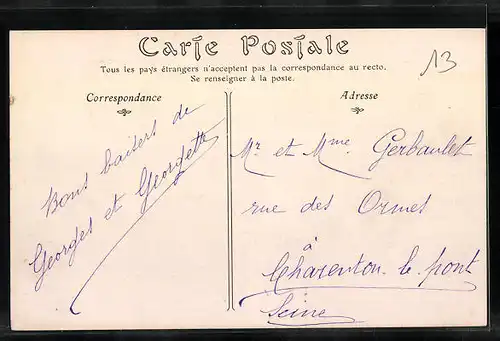 Carte Postale
Tous les pays étrangers n'acceptent pas la correspondance au recto.
Se renseigner à la poste.
13
Correspondance
Bons baisers de
Georges et Georgette
Adresse
Mr et Mme. Gerbaulet
rue des Ormes
à
Charenton le pont
Seine